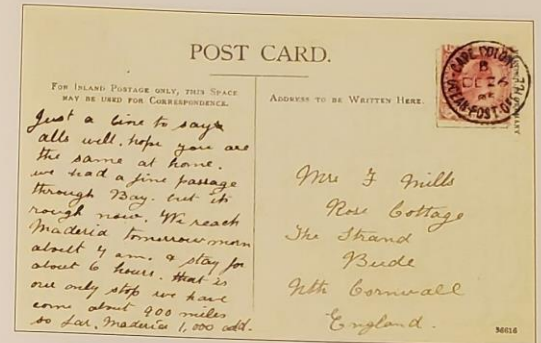 POST CARD.
FOR INLAND POSTAGE ONLY, THIS SPACE
MAY BE USED FOR CORRESPONDENCE.
ADDRESS TO BE WRITTEN HERE.
CAPE COLONY
B
OC 24
OCEAN POST OFFICE
Just a line to say
alls well. hope you are
the same at home.
we had a fine passage
through Bay. but its
rough now. We reach
Maderia tomorrow morn
about 4 am. & stay for
about 6 hours. that is
our only stop we have
come about 900 miles
so far. Maderia 1,000 odd.
Mrs F Mills
Rose Cottage
The Strand
Bude
Nth Cornwall
England.
36616